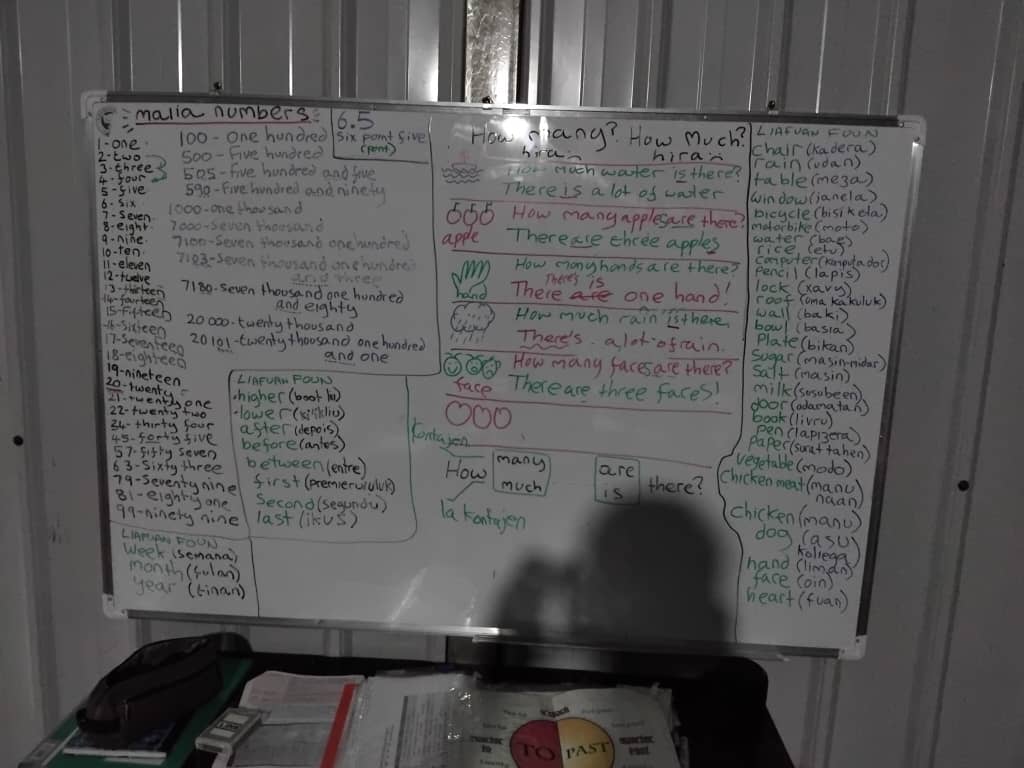 malia numbers
1-one
2-two
3-three
4-four
5-five
6-six
7-seven
8-eight
9-nine
10-ten
11-eleven
12-twelve
13-thirteen
14-fourteen
15-fifteen
16-sixteen
17-seventeen
18-eighteen
19-nineteen
20-twenty
21-twenty one
22-twenty two
34-thirty four
45-forty five
57-fifty seven
63-sixty three
79-seventy nine
81-eighty one
99-ninety nine
LIAFUAN FOUN
week (semana)
month (fulan)
year (tinan)
100-one hundred
500-five hundred
505-five hundred and five
590-five hundred and ninety
1000-one thousand
7000-seven thousand
7100-seven thousand one hundred
7103-seven thousand one hundred
and three
7180-seven thousand one hundred
and eighty
20 000-twenty thousand
20101-twenty thousand one hundred
and one
6.5
six point five
LIAFUAN FOUN
higher (boot liu)
lower
after (depois)
before (antes)
between (entre)
first
second (segundu)
last (ikus)
How many? How Much?
hira hira
How much water is there?
There is a lot of water
How many apples are there?
apple There are three apples
How many hands are there?
There's is
hand There are one hand!
How much rain is there
There's a lot of rain.
How many faces are there?
face There are three faces!
Kontajen
How many much are is there?
la kontajen
LIAFUAN FOUN
chair (kadera)
rain (udan)
table (meza)
window (janela)
bicycle (bisikela)
motorbike (moto)
water (bee)
rice (etu)
computer (komputador)
pencil (lapis)
lock (xavy)
roof (uma kakuluk)
wall (baki)
bowl (basia)
plate (bikan)
sugar (masin-midar)
salt (masin)
milk (susubeen)
door (odamatan)
book (livru)
pen (lapizera)
paper (surat tahan)
vegetable (modo)
chicken meat (manu
naan)
chicken (manu)
dog (asu)
koliega
hand (liman)
face (oin)
heart (fuan)
TO PAST